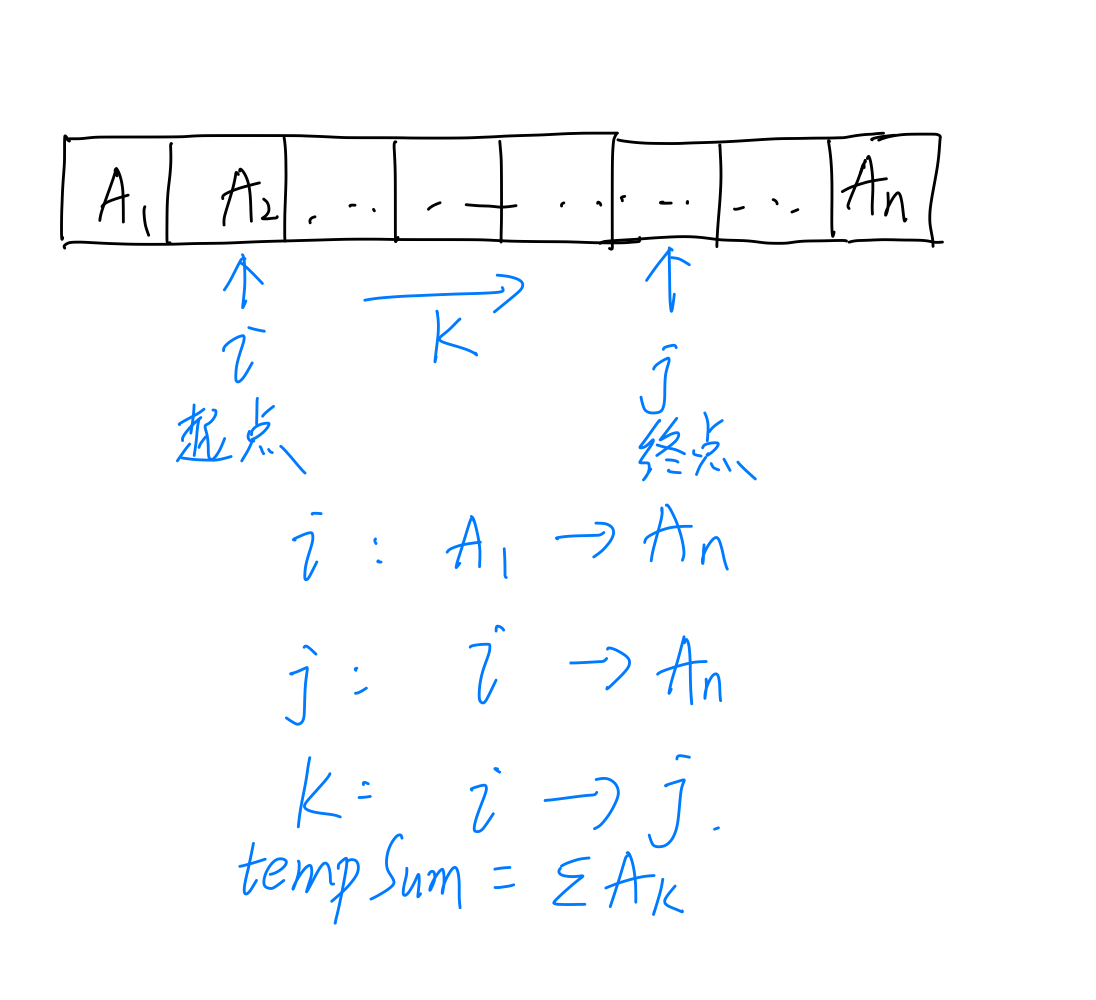 A₁ A₂ . . . . — . . . . . . . . . Aₙ
K
i j
起点 终点
i : A₁ → Aₙ
j : i → Aₙ
K = i → j .
tempSum = ΣAₖ